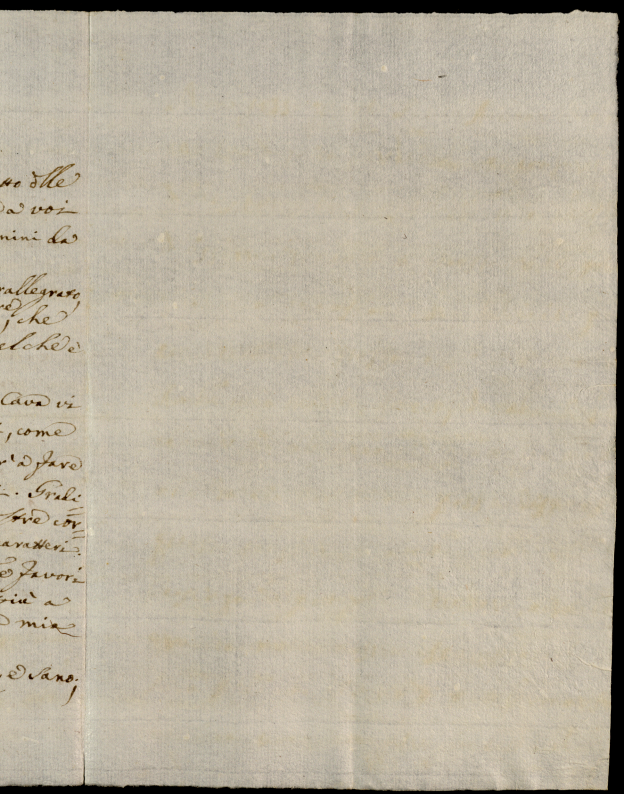 tto dlle
da voi
mini da
rallegrato,
, che
elche è
Cava vi
, come
r' a fare
. Grali=
stre cor=
caratteri
e favori
più a
mia
, e sano;